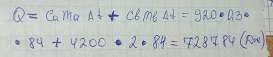 Q = CaMa Δt + CвMв Δt = 920·0,3·
·84 + 4200·2·84 = 728784 (Дж)